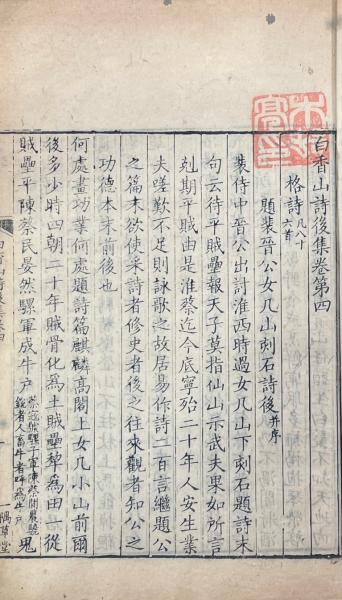 白香山詩後集卷第四
格詩凡八十六首
題裴晉公女几山刻石詩後并序
裴侍中晉公出討淮西時過女几山下刻石題詩末
句云待平賊壘報天子莫指仙山示武夫果如所言
剋期平賊由是淮蔡迄今底寧殆二十年人安生業
夫嗟歎不足則詠歌之故居易作詩二百言繼題公
之篇末欲使采詩者修史者後之往來觀者知公之
功德本末前後也
何處畫功業何處題詩篇麒麟高閣上女几小山前爾
後多少時四朝二十年賊骨化為土賊壘犂為田一從
賊壘平陳蔡民晏然騾軍成牛戶
蔡寇號騾子軍陳蔡間農驍
銳者人畜牛者呼為牛戶
鬼
白香山後集卷四
一
一隅草堂